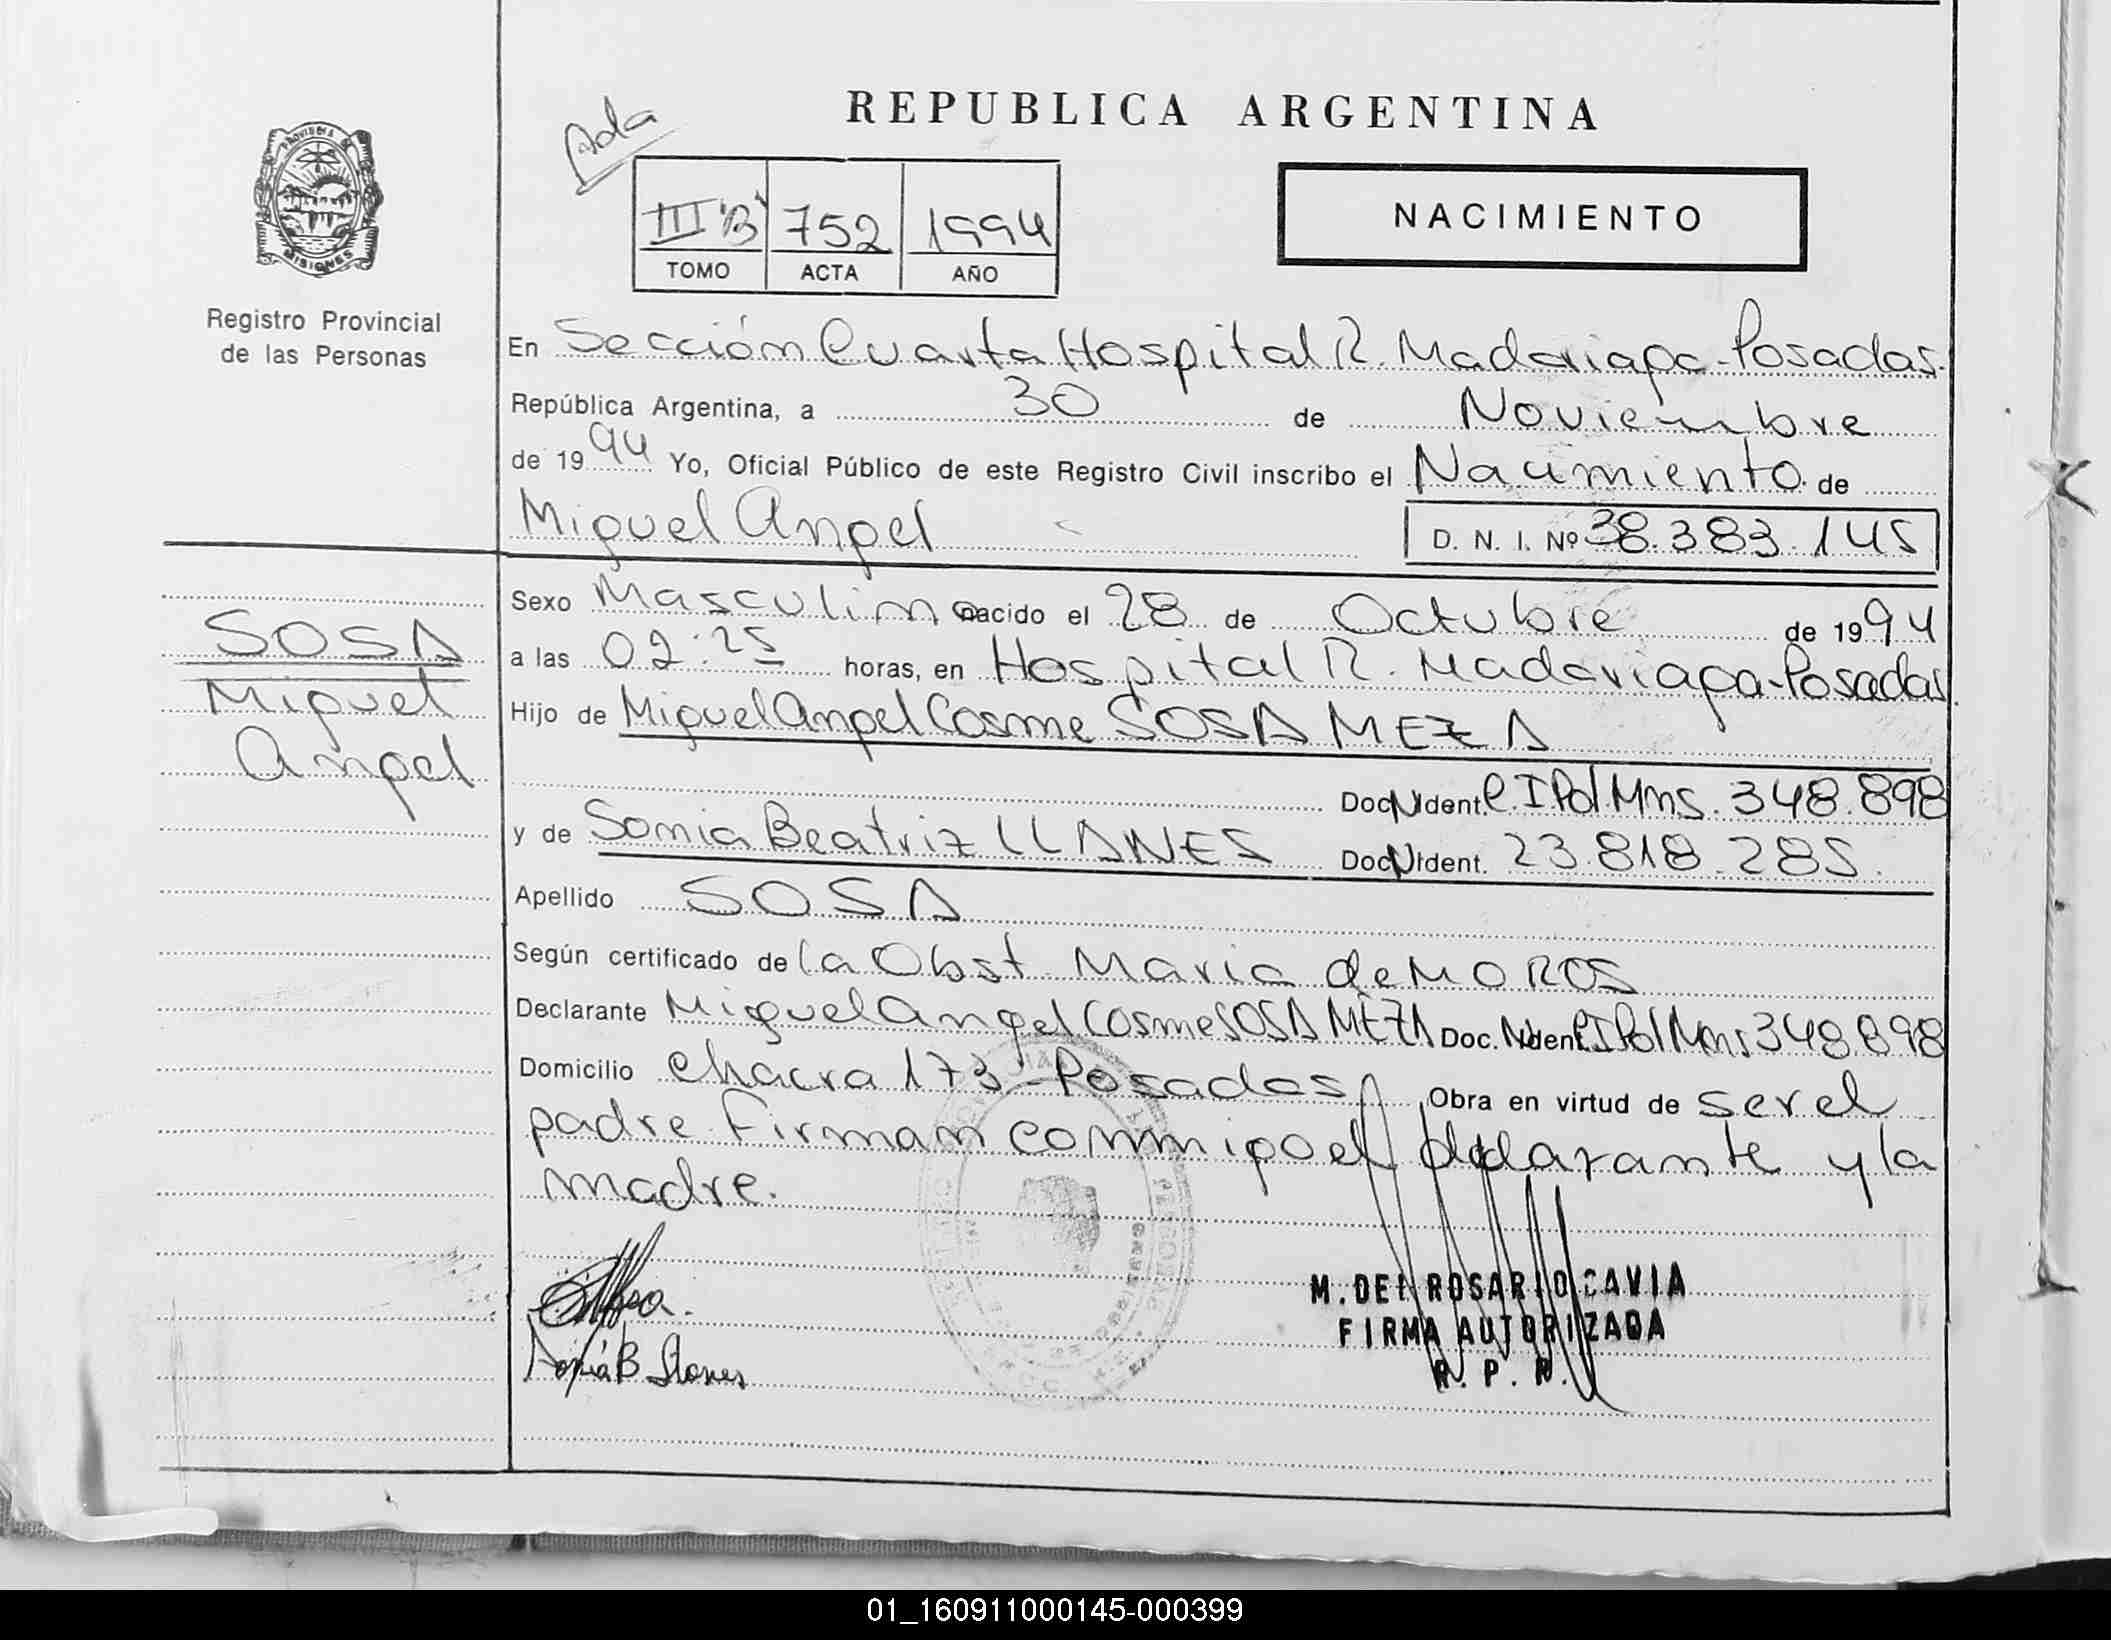 REPUBLICA ARGENTINA
Ada
III "B" 752 1994
TOMO ACTA AÑO
NACIMIENTO
PROVINCIA DE MISIONES
Registro Provincial
de las Personas
En Sección Cuarta Hospital R. Madariaga-Posadas.
República Argentina, a 30 de Noviembre
de 1994 Yo, Oficial Público de este Registro Civil inscribo el Nacimiento de
Miguel Angel
D. N. I. Nº 38.383.145
SOSA
Miguel
Angel
Sexo Masculino nacido el 28 de Octubre de 1994
a las 02:25 horas, en Hospital R. Madariaga-Posadas
Hijo de Miguel Angel Cosme SOSA MEZA
Doc. Ident. C.I Pol. Mns. 348.898
y de Sonia Beatriz LLANES Doc. Ident. 23.818.285.
Apellido SOSA
Según certificado de la Obst Maria de MOROS
Declarante Miguel Angel Cosme SOSA MEZA Doc. Ident. C.I Pol Mns 348.898
Domicilio Chacra 173-Posadas Obra en virtud de ser el
padre. Firman conmigo el declarante y la
madre.
Sonia B Llanes
M. DEL ROSARIO CAVIA
FIRMA AUTORIZADA
R. P. P.
01_160911000145-000399